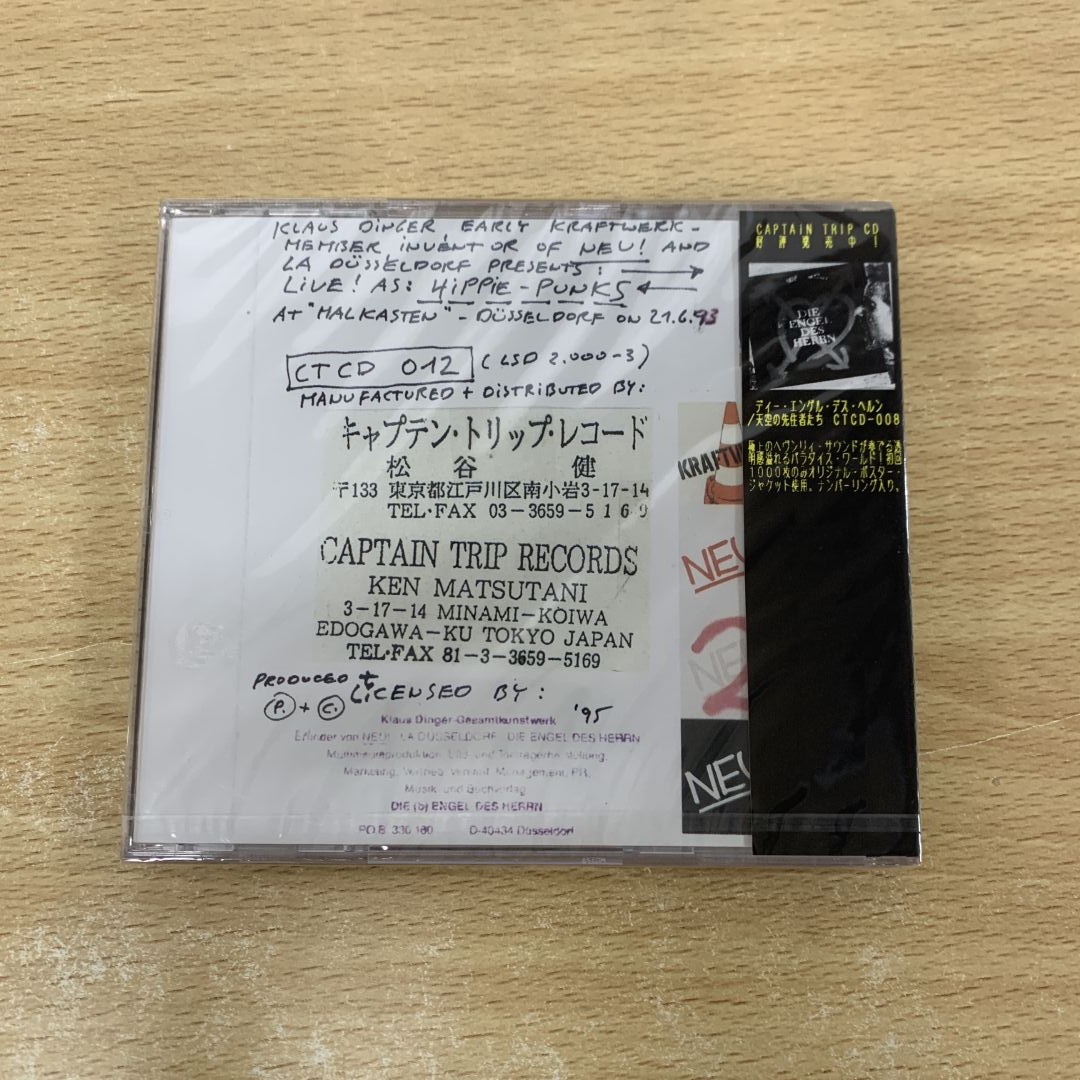 KLAUS DiNGER, EARLY KRAFTWERK-
MEMBER, iNVENTOR OF NEU! AND
LA DÜSSELDORF PRESENTS:
LiVE! AS: HiPPiE-PUNKS
AT "MALKASTEN"-DÜSSELDORF ON 21.6.93
CTCD 012 (LSD 2.000-3)
MANUFACTURED + DISTRIBUTED BY:
キャプテン・トリップ・レコード
松谷 健
〒133 東京都江戸川区南小岩3-17-14
TEL・FAX 03-3659-5169
CAPTAIN TRIP RECORDS
KEN MATSUTANI
3-17-14 MINAMI-KOIWA
EDOGAWA-KU TOKYO JAPAN
TEL・FAX 81-3-3659-5169
PRODUCED +
P. + C. LiCENSED BY:
'95
Klaus Dinger-Gesamtkunstwerk
Erfinder von NEU! LA DÜSSELDORF DIE ENGEL DES HERRN
Marketing, Vertrieb, Management, PR,
Musik- und Buchverlag
DIE (b) ENGEL DES HERRN
P.O.B. 330 180 D-40434 Düsseldorf
KRAFTW
NEU
2
NE
NEU
CAPTAIN TRIP CD
好評発売中!
DIE
ENGEL
DES
HERRN
ディー・エンゲル・デス・ヘルン
/天空の先住者たち CTCD-008
極上のヘヴンリィ・サウンドが奏でる透
明感溢れるパラダイス・ワールド!初回
1000枚のみオリジナル・ポスター・
ジャケット使用、ナンバーリング入り。